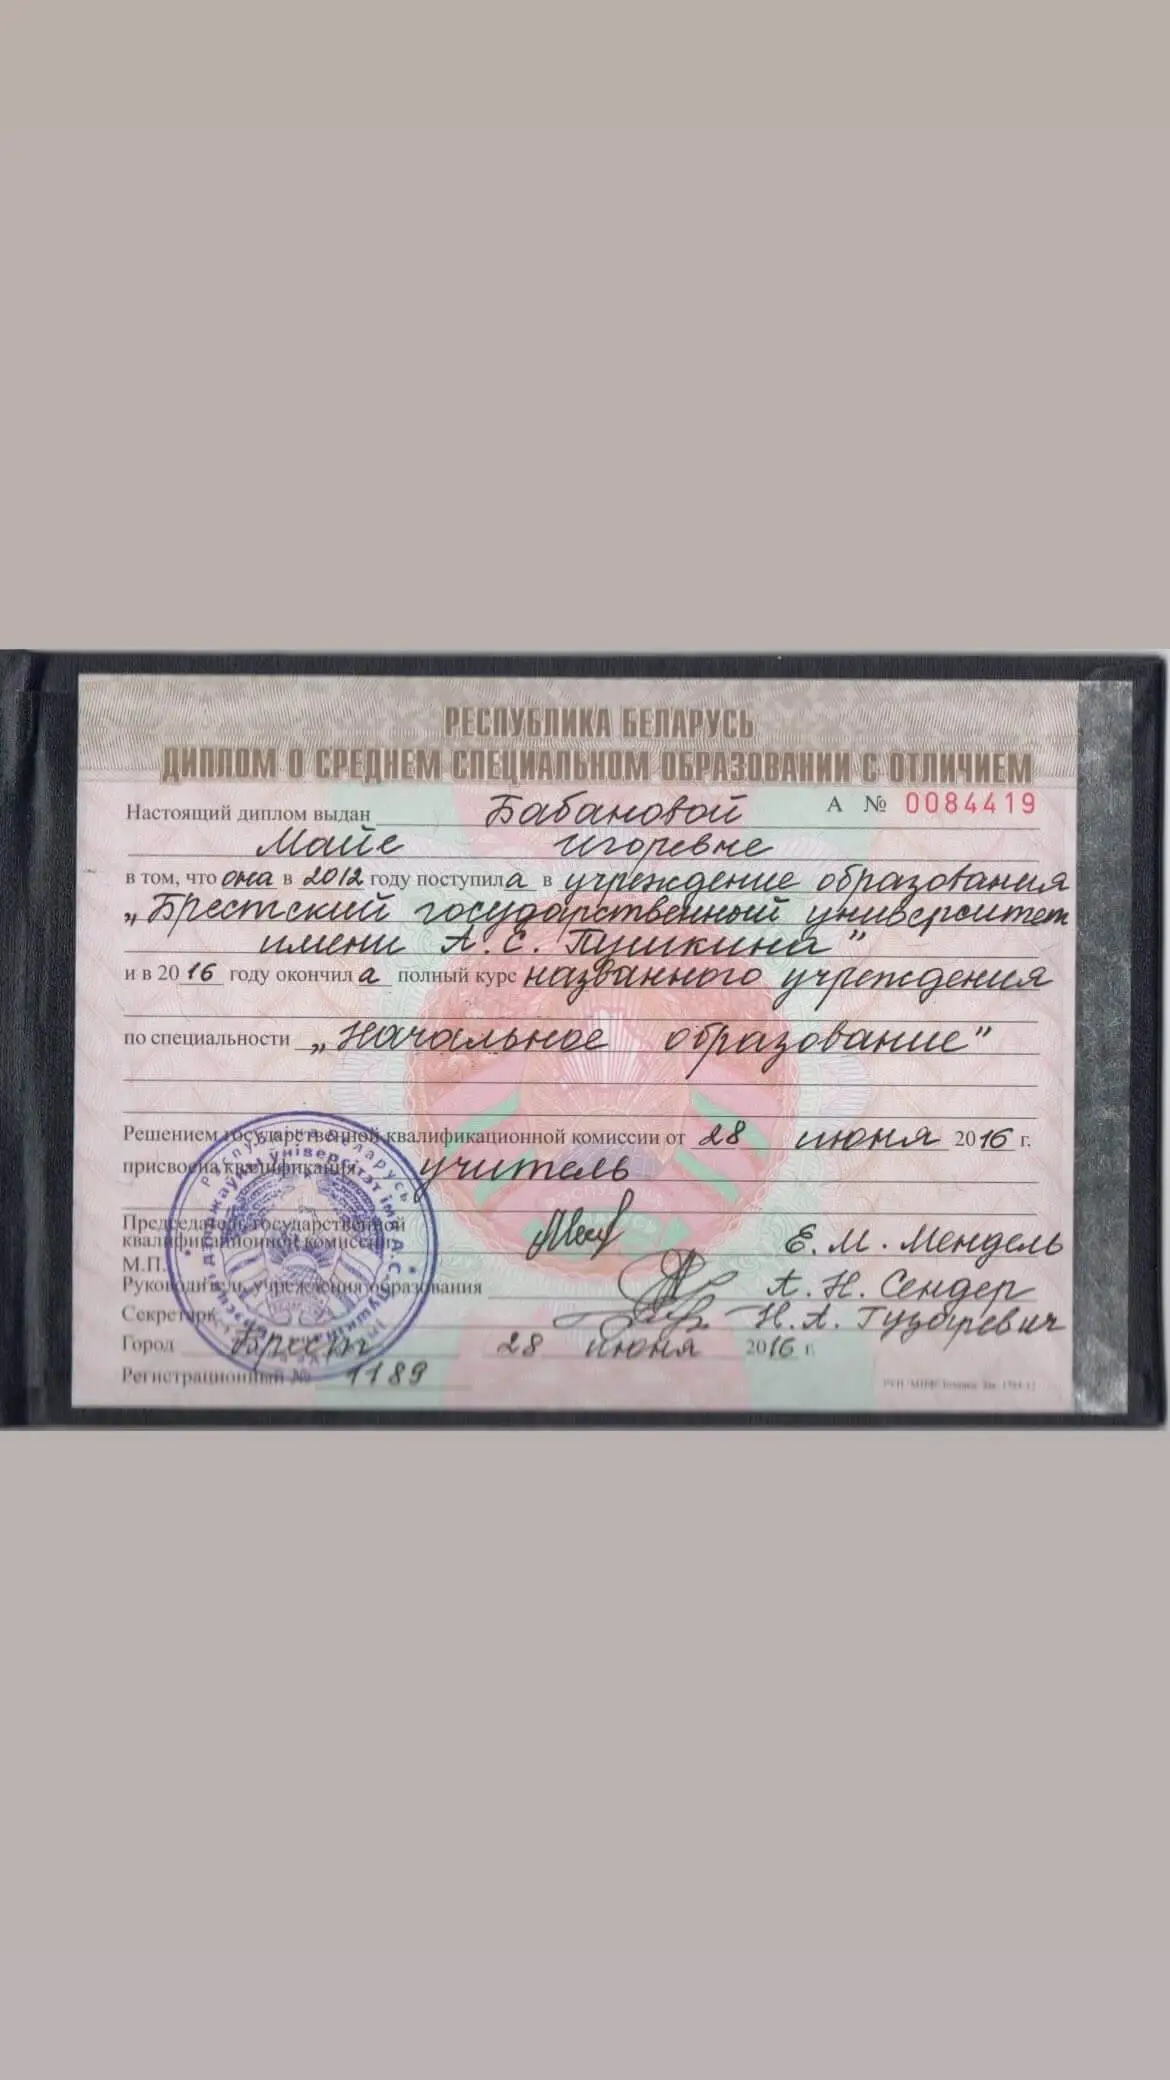 РЕСПУБЛИКА БЕЛАРУСЬ
ДИПЛОМ О СРЕДНЕМ СПЕЦИАЛЬНОМ ОБРАЗОВАНИИ С ОТЛИЧИЕМ
А № 0084419
Настоящий диплом выдан Бабановой
Майе Игоревне
в том, что она в 2012 году поступила в учреждение образования
„Брестский государственный университет
имени А. С. Пушкина"
и в 2016 году окончила полный курс названного учреждения
по специальности „Начальное образование"
Решением государственной квалификационной комиссии от 28 июня 2016 г.
присвоена квалификация учитель
Председатель государственной
квалификационной комиссии Е. М. Мендель
М.П.
Руководитель учреждения образования А. Н. Сендер
Секретарь Н. А. Гузаревич
Город Брест 28 июня 2016 г.
Регистрационный № 1189